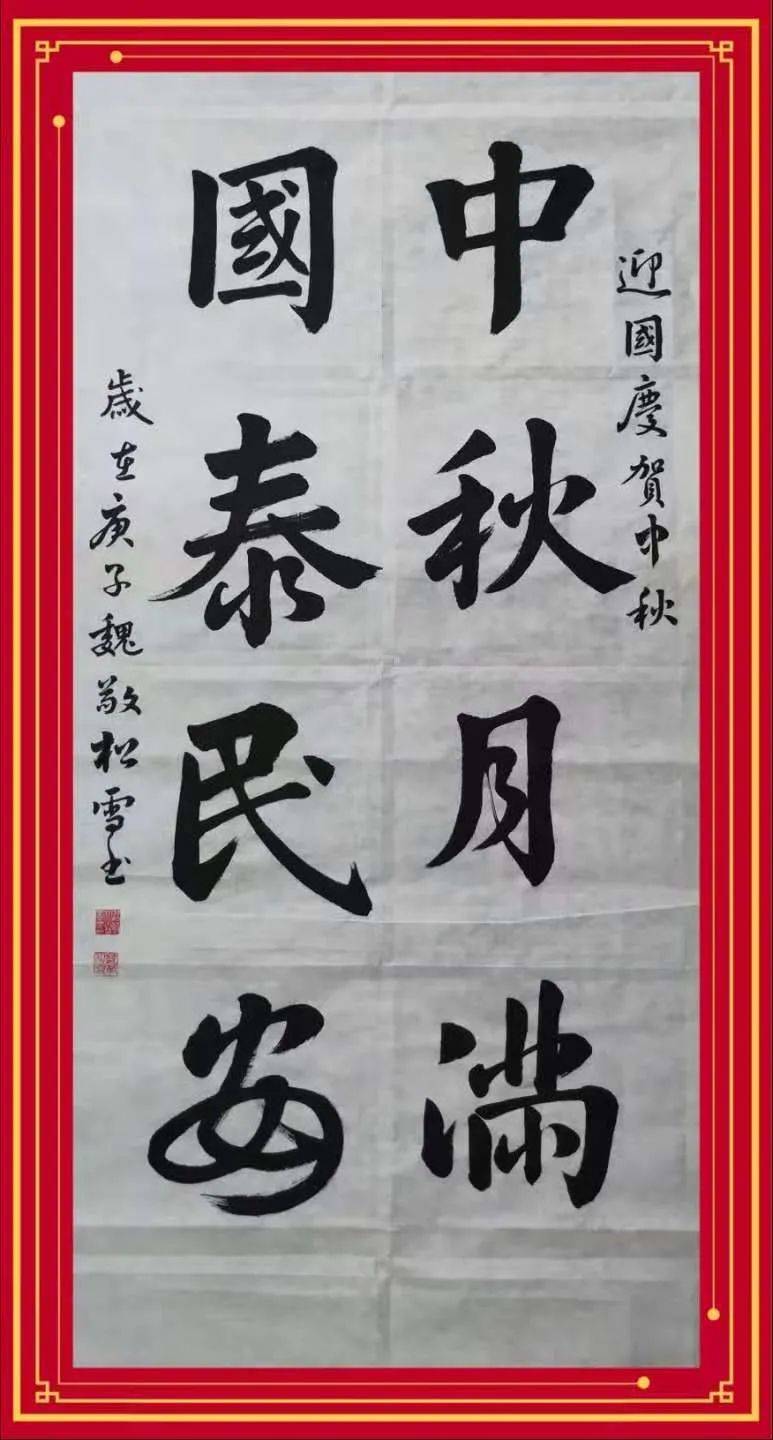 迎國慶賀中秋
中秋月滿
國泰民安
歲在庚子魏敬松雪书